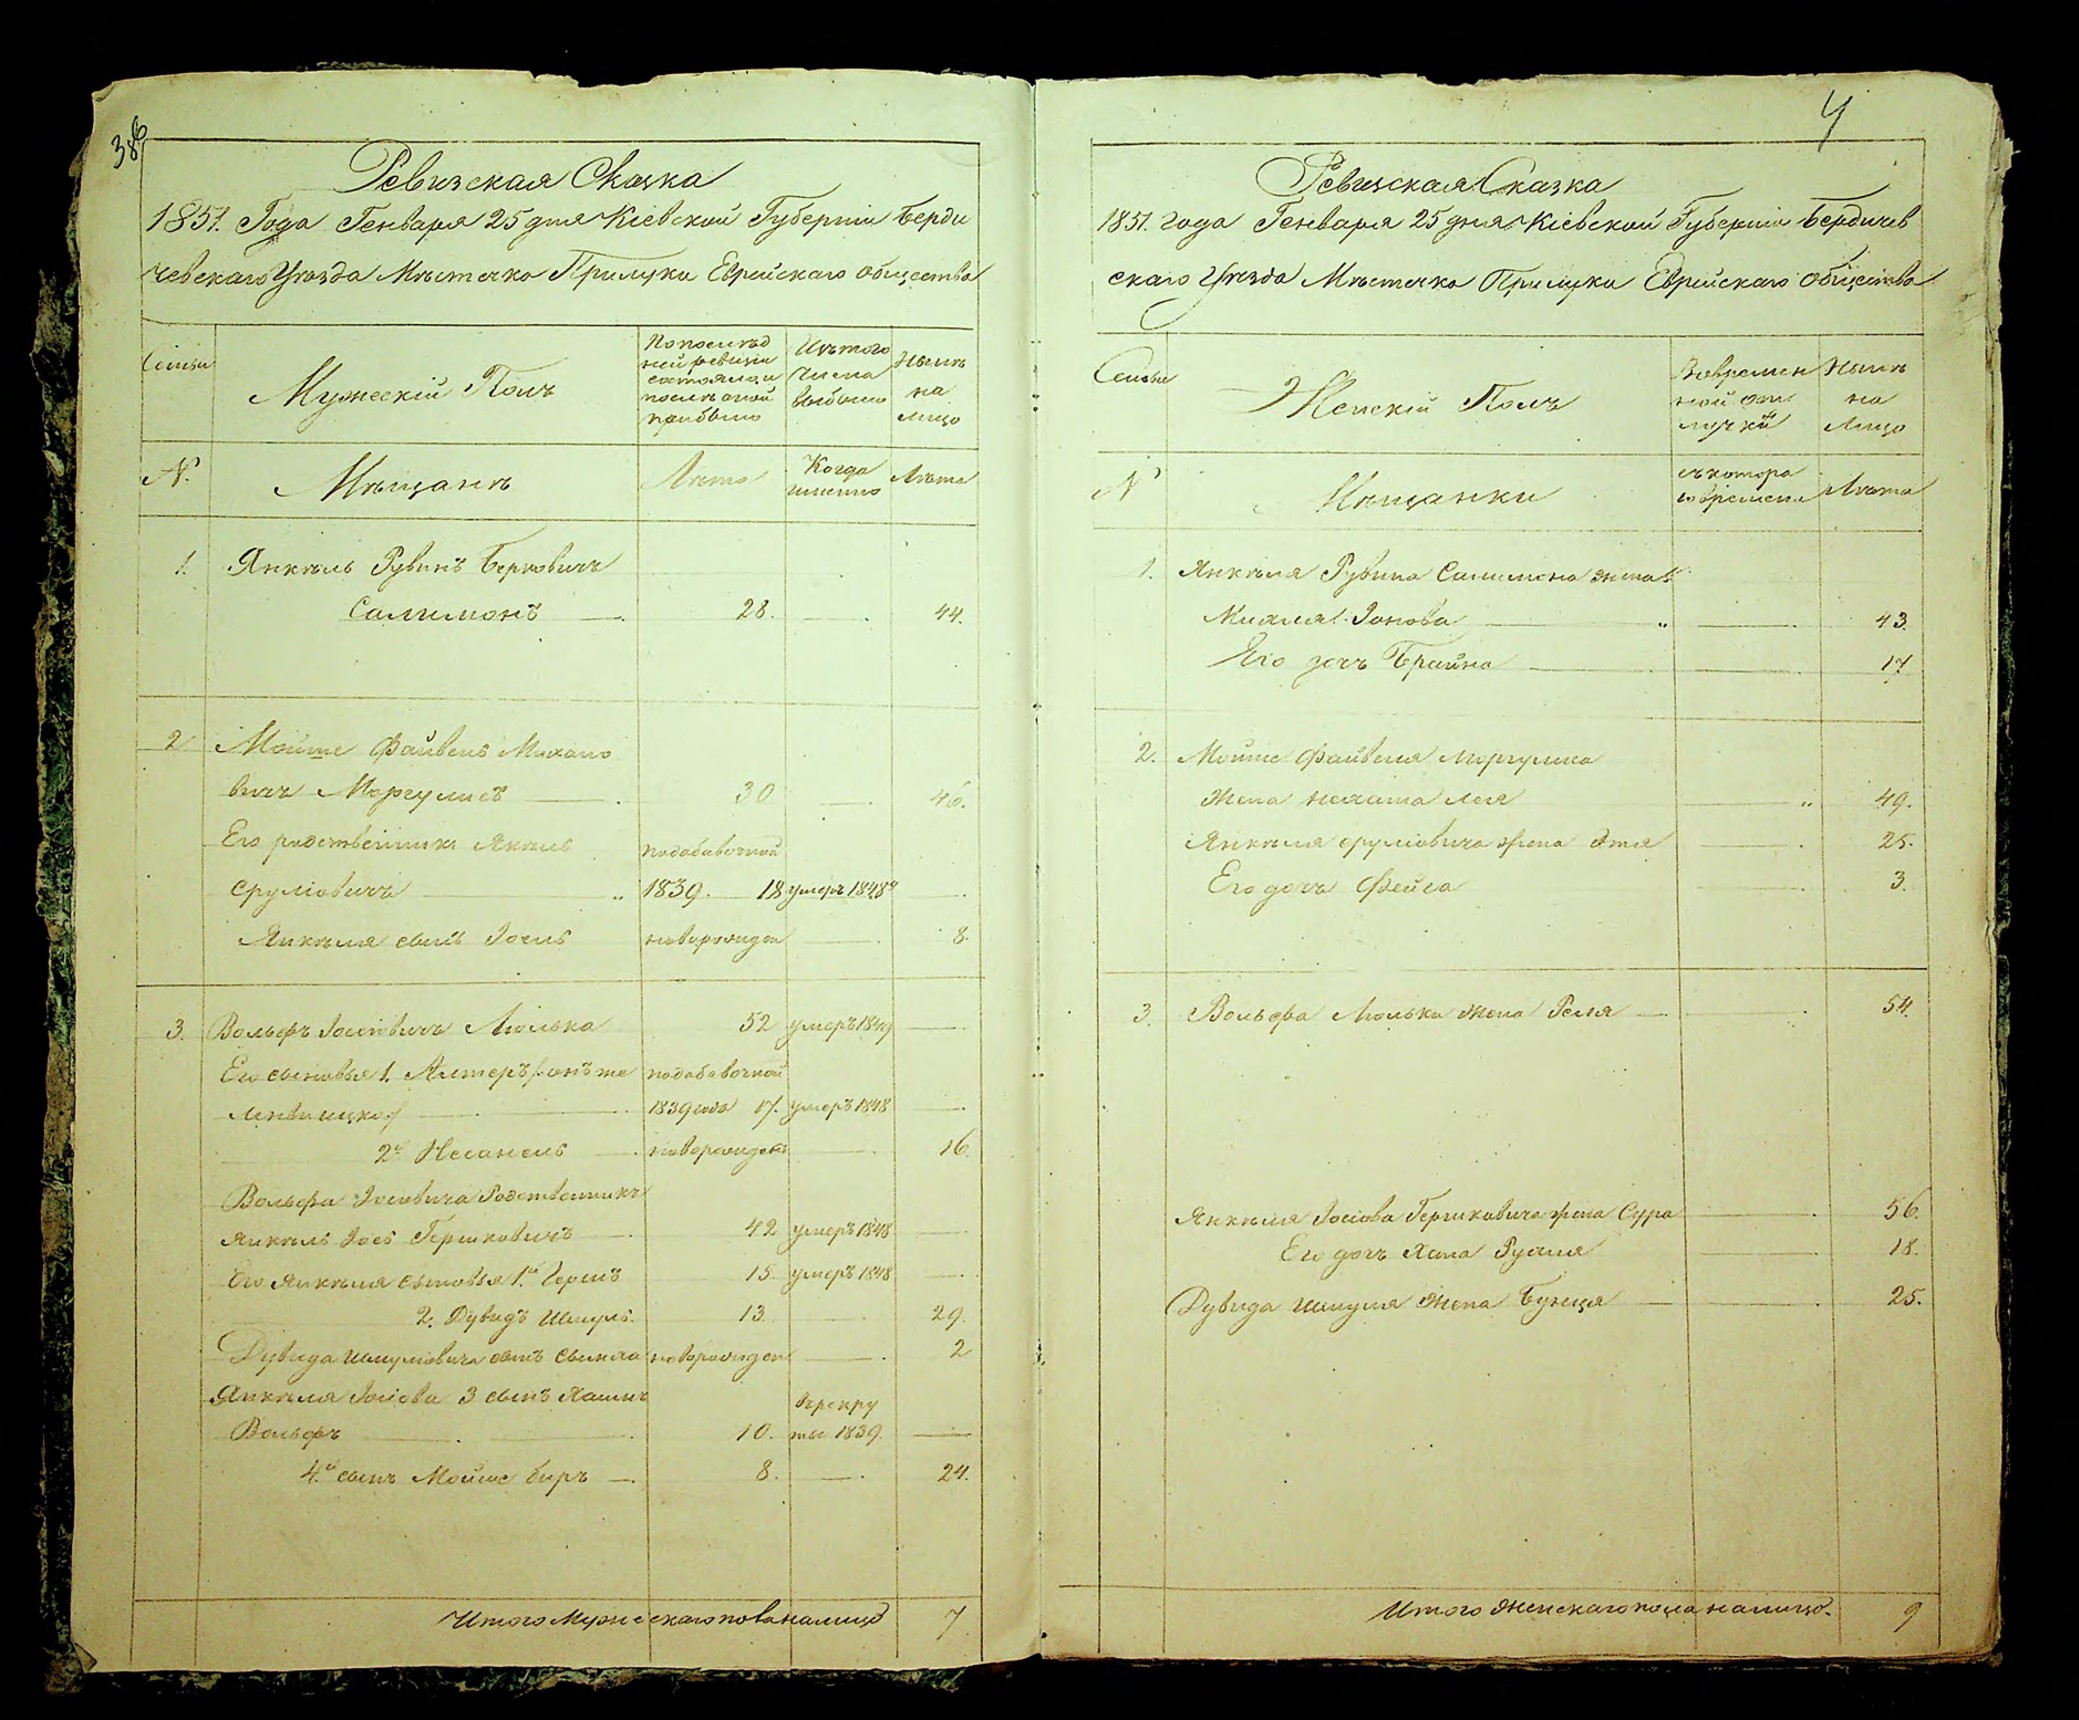 388
Ревизская Сказка
1851. Года Генваря 25 дня Кіевской Губерніи Берди
чевскаго Уѣзда Мѣстечка Прилуки Еврейскаго общества
Семьи
Мужескій Полъ
По послѣд
ней ревизіи
состояло и
послѣ оной
прибыло
Изъ того
числа
выбыло
Нынѣ
на
лицо
N.
Мѣщане
Лѣта
Когда
именно
Лѣта
1. Янкель Рувинъ Берковичъ
Салимонъ 28. 44.
2 Мойше Файвель Михало
вичъ Моргулисъ 30 46.
Его родственникъ Янкель по добавочной
Сруліовичъ 1839. 18 умеръ 1848
Янкеля сынъ Іосль новорожден 8.
3. Вольфъ Іосіовичъ Люлька 52 умеръ 1849
Его сыновья 1. Алтеръ онъ же по добавочной
1839 года 17. умеръ 1848
2й Несанель новорожденъ 16.
Вольфа Іосіовича Родственникъ
Янкель Іось Гершковичъ 42 умеръ 1848
Его Янкеля сыновья 1й Гершъ 15 умеръ 1848
2. Дувидъ Шмуль 13 29.
Дувида Шмуліовича сынъ новорожден 2
Янкеля Іосіова 3 сынъ въ рекру
Вольфъ 10. ты 1839.
4й сынъ Мойше Беръ 8. 24.
Итого Мужескаго пола налицо 7
4
Ревизская Сказка
1851. года Генваря 25 дня Кіевской Губерніи Бердичев
скаго Уѣзда Мѣстечка Прилуки Еврейскаго общества
Семьи
Женскій Полъ
Во времен
ной от
лучкѣ
Нынѣ
на
Лицо
N
Мѣщанки
съ котора
го времени
Лѣта
1. Янкеля Рувина Салимона жена
Іонова 43.
Его дочь Брайна 17
2. Мойше Файвеля Моргулиса
Жена Нехама Лея 49.
Янкеля Сруліовича жена Этя 25.
Его дочь Фейга 3.
3. Вольфа Люльки жена Рейзя 54.
Янкеля Іосіова Гершковича жена Сура 56.
Его дочь Хана Рухля 18.
Дувида Шмуля жена Бунця 25.
Итого Женскаго пола налицо. 9